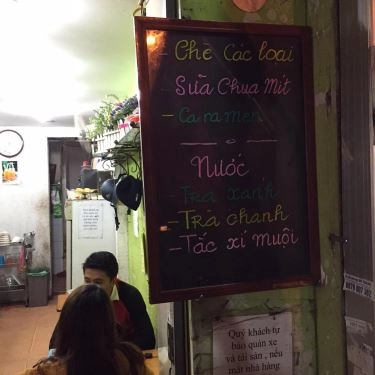 - Chè Các loại
- Sữa Chua Mít
- Caramen
Nước
Trà xanh
- Trà chanh
- Tắc xí muội
Quý khách tự
bảo quản xe
và tài sản, nếu
mất nhà hàng